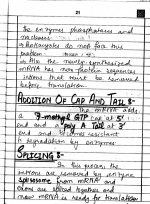 21
the enzymes phosphatases and
nucleases
→ Eukaryotes do not face this
problem
→ Also the newly synthesized
mRNA has non-protein sequences
introns that must be removed
before translation.
ADDITION OF CAP AND TAIL :-
The mRNA adds
a 7-methyl GTP cap at 5'
end and poly A Tail at 3'
end and against
degradation by enzymes
SPLICING :-
In this process, the
introns are removed by enzyme
from mRNA and
exons are spliced together and
now mRNA is ready for translation